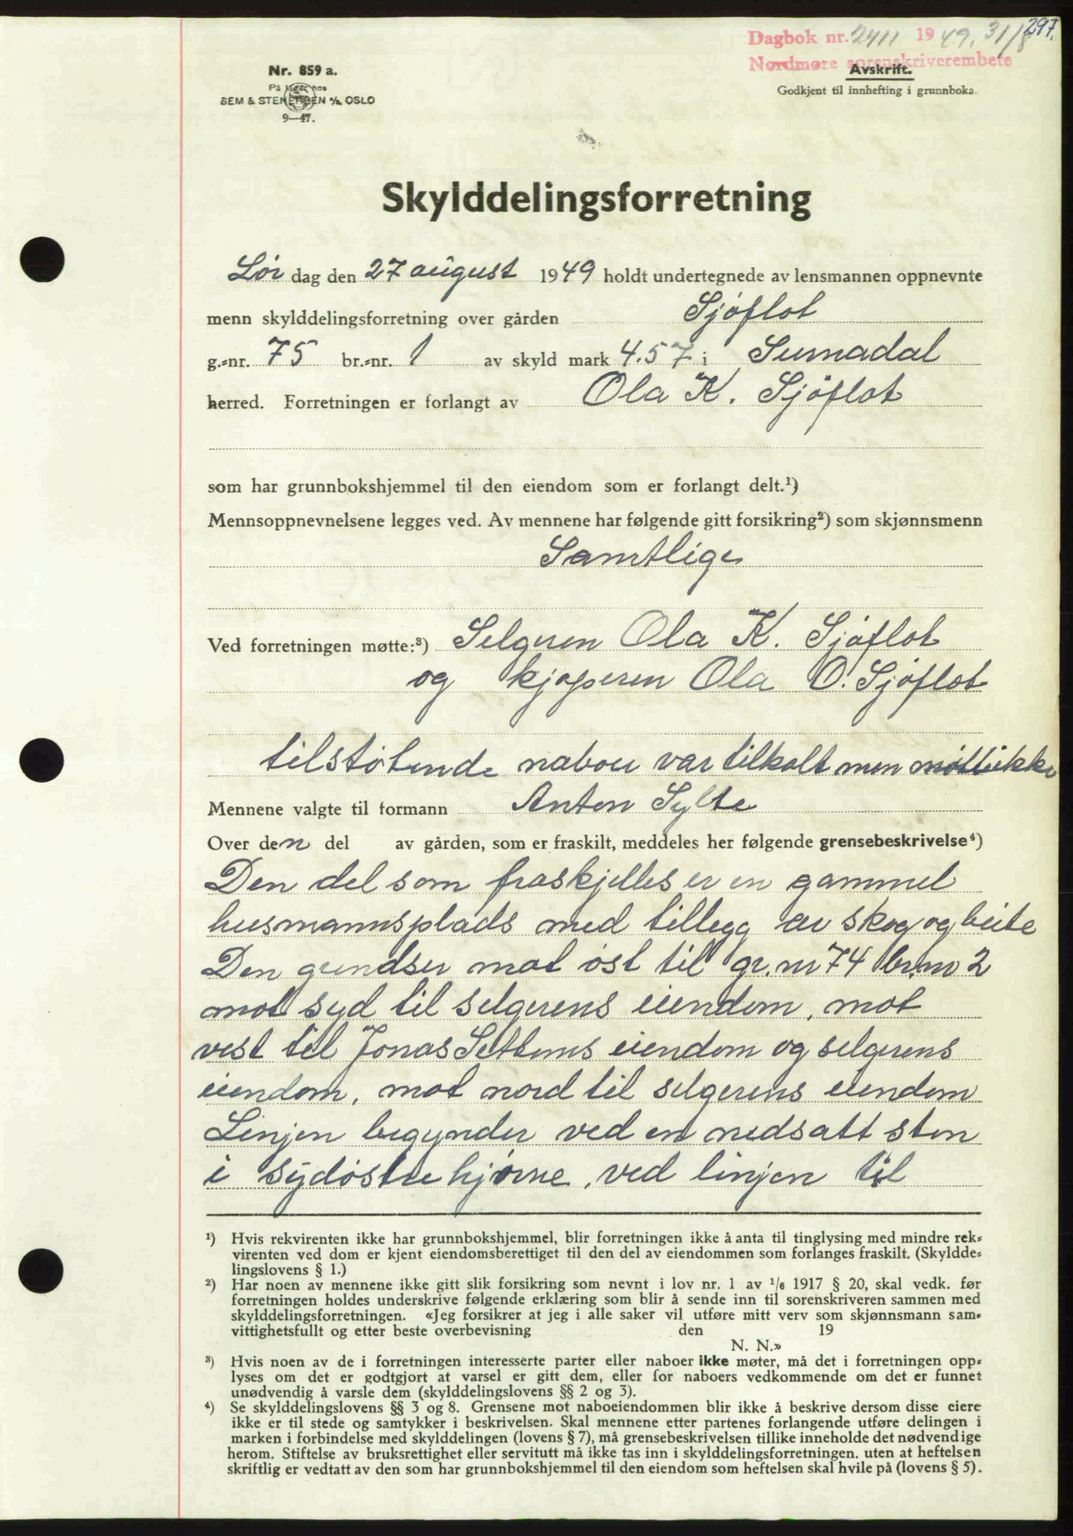 297.
Dagbok nr. 2411 1949. 31/8
Nordmøre sorenskriverembete
Avskrift.
Godkjent til innhefting i grunnboka.
Nr. 859 a.
På lager hos
SEM & STENERSEN A/S, OSLO
9—47.
Skylddelingsforretning
Lør dag den 27 august 1949 holdt undertegnede av lensmannen oppnevnte
menn skylddelingsforretning over gården Sjøflot
g.-nr. 75 br.-nr. 1 av skyld mark 4.57 i Surnadal
herred. Forretningen er forlangt av Ola K. Sjøflot
som har grunnbokshjemmel til den eiendom som er forlangt delt.¹)
Mennsoppnevnelsene legges ved. Av mennene har følgende gitt forsikring²) som skjønnsmenn
Samtlige
Ved forretningen møtte:³) Selgeren Ola K. Sjøflot
og kjøperen Ola O. Sjøflot
tilstøtende naboer var tilkalt men møtte ikke
Mennene valgte til formann Anton Sylte
Over den del av gården, som er fraskilt, meddeles her følgende grensebeskrivelse⁴)
Den del som fraskjelles er en gammel
husmannsplads med tillegg av skog og beite
Den grendser mot øst til gr.nr 74 br.nr 2
mot syd til selgerens eiendom, mot
vest til Jonas Settems eiendom og selgerens
eiendom, mot nord til selgerens eiendom
Linjen begynder ved en nedsatt sten
i sydøstre hjørne, ved linjen til
¹) Hvis rekvirenten ikke har grunnbokshjemmel, blir forretningen ikke å anta til tinglysing med mindre rek-
virenten ved dom er kjent eiendomsberettiget til den del av eiendommen som forlanges fraskilt. (Skyldde-
lingslovens § 1.)
²) Har noen av mennene ikke gitt slik forsikring som nevnt i lov nr. 1 av 1/6 1917 § 20, skal vedk. før
forretningen holdes underskrive følgende erklæring som blir å sende inn til sorenskriveren sammen med
skylddelingsforretningen. «Jeg forsikrer at jeg i alle saker vil utføre mitt verv som skjønnsmann sam-
vittighetsfullt og etter beste overbevisning den 19
N. N.»
³) Hvis noen av de i forretningen interesserte parter eller naboer ikke møter, må det i forretningen opp-
lyses om det er godtgjort at varsel er gitt dem, eller for naboers vedkommende om det er funnet
unødvendig å varsle dem (skylddelingslovens §§ 2 og 3).
⁴) Se skylddelingslovens §§ 3 og 8. Grensene mot naboeiendommen blir ikke å beskrive dersom disse eiere
ikke er til stede og samtykker i beskrivelsen. Skal mennene etter partenes forlangende utføre delingen i
marken i forbindelse med skylddelingen (lovens § 7), må grensebeskrivelsen tillike inneholde det nødvendige
herom. Stiftelse av bruksrettighet eller servitutt må ikke tas inn i skylddelingsforretningen, uten at heftelsen
skriftlig er vedtatt av den som har grunnbokshjemmel til den eiendom som heftelsen skal hvile på (lovens § 5).